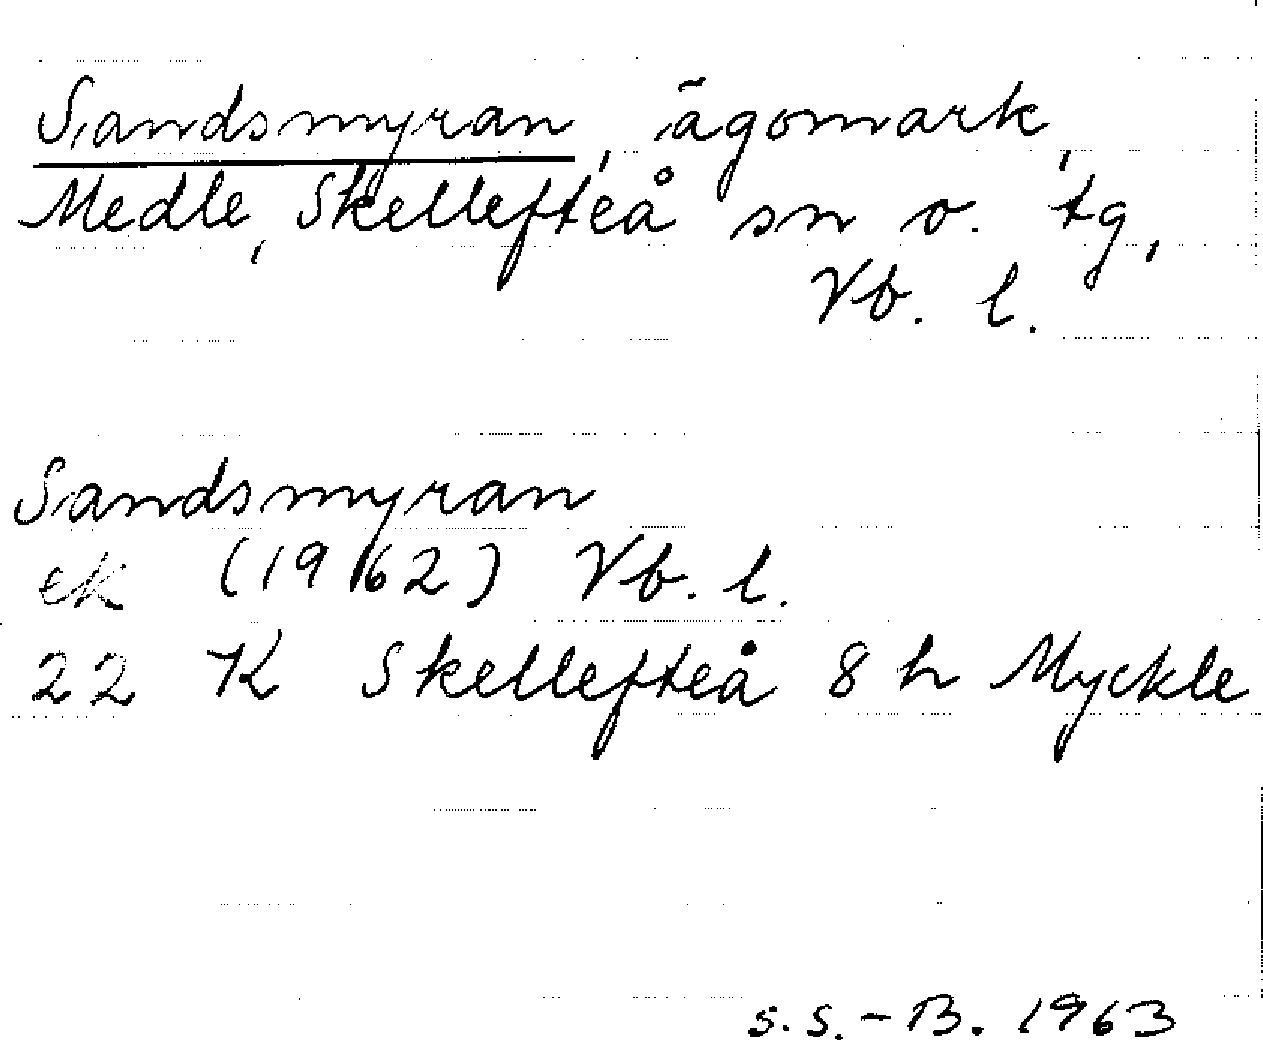 Sandsmyran, ägomark,
Medle, Skellefteå sn o. tg,
Vb. l.
Sandsmyran
ek (1962) Vb. l.
22 K Skellefteå 8 h Myckle
S.S.-B. 1963